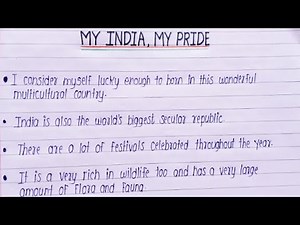 MY INDIA, MY PRIDE
• I consider myself lucky enough to born in this wonderful
multicultural country.
• India is also the world's biggest secular republic.
• There are a lot of festivals celebrated throughout the year.
• It is a very rich in wildlife too and has a very large
amount of Flora and Fauna.